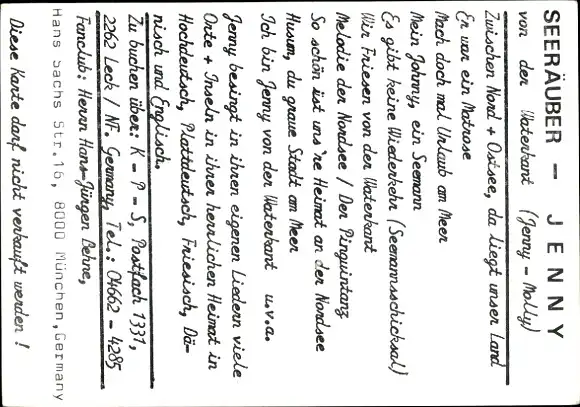 SEERÄUBER - JENNY
von der Waterkant (Jenny - Molly)
Zwischen Nord + Ostsee, da liegt unser Land
Er war ein Matrose
Mach doch mal Urlaub am Meer
Mein Johnny, ein Seemann
Es gibt keine Wiederkehr (Seemannsschicksal)
Wir Friesen von der Waterkant
Melodie der Nordsee / Der Pinguintanz
So schön ist uns're Heimat an der Nordsee
Husum, du graue Stadt am Meer
Ich bin Jenny von der Waterkant u.v.a.
Jenny besingt in ihren eigenen Liedern viele
Orte + Inseln in ihrer herrlichen Heimat in
Hochdeutsch, Plattdeutsch, Friesisch, Dä-
nisch und Englisch.
Zu buchen über: K - P - S, Postfach 1331,
2262 Leck / NF. Germany, Tel.: 04662 - 4285
Fanclub: Herrn Hans-Jürgen Behne,
Hans Sachs Str.16, 8000 München, Germany
Diese Karte darf nicht verkauft werden !